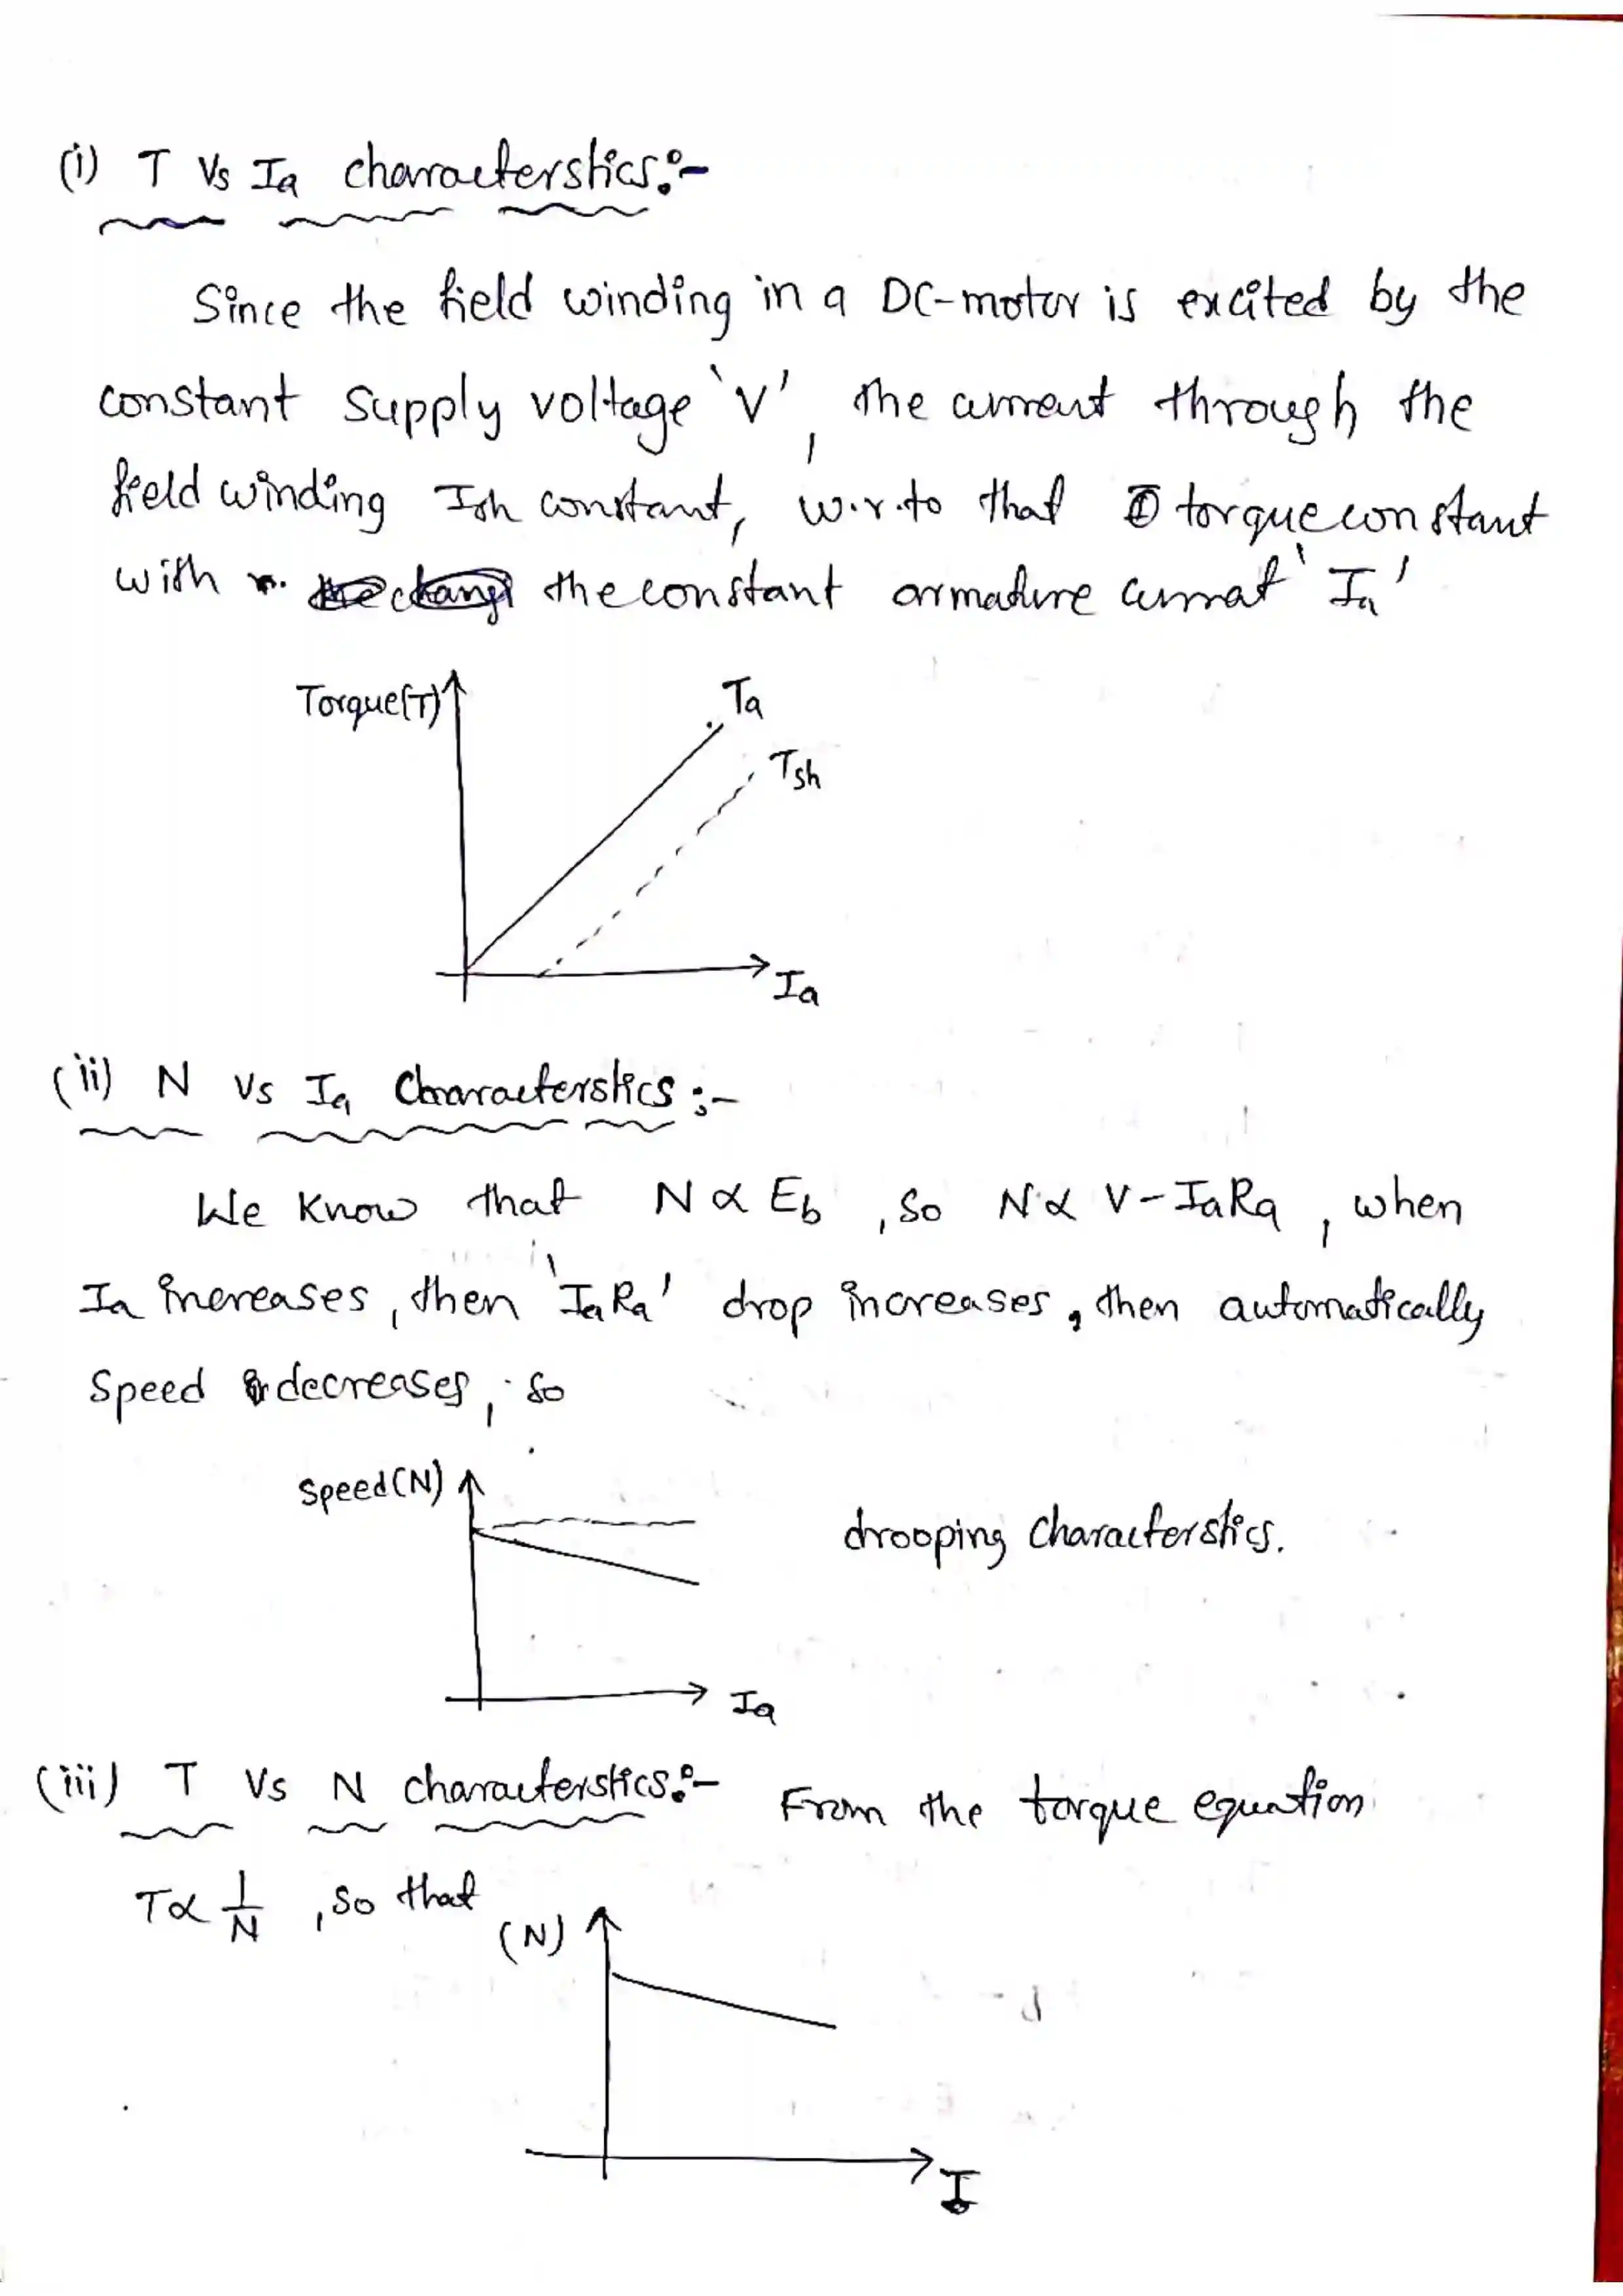 (i) T Vs Ia characterstics:-
Since the field winding in a DC-motor is excited by the
constant supply voltage 'V', the current through the
field winding Ish constant, w.r.to that torque constant
with the constant armature current 'Ia'
Torque(T)
Ta
Tsh
Ia
(ii) N Vs Ia Characterstics :-
We know that N ∝ Eb , so N ∝ V-IaRa , when
Ia increases, then 'IaRa' drop increases, then automatically
speed decreases, so
Speed(N)
drooping characterstics.
Ia
(iii) T Vs N characterstics:- From the torque equation
T∝ 1/N , so that
(N)
I